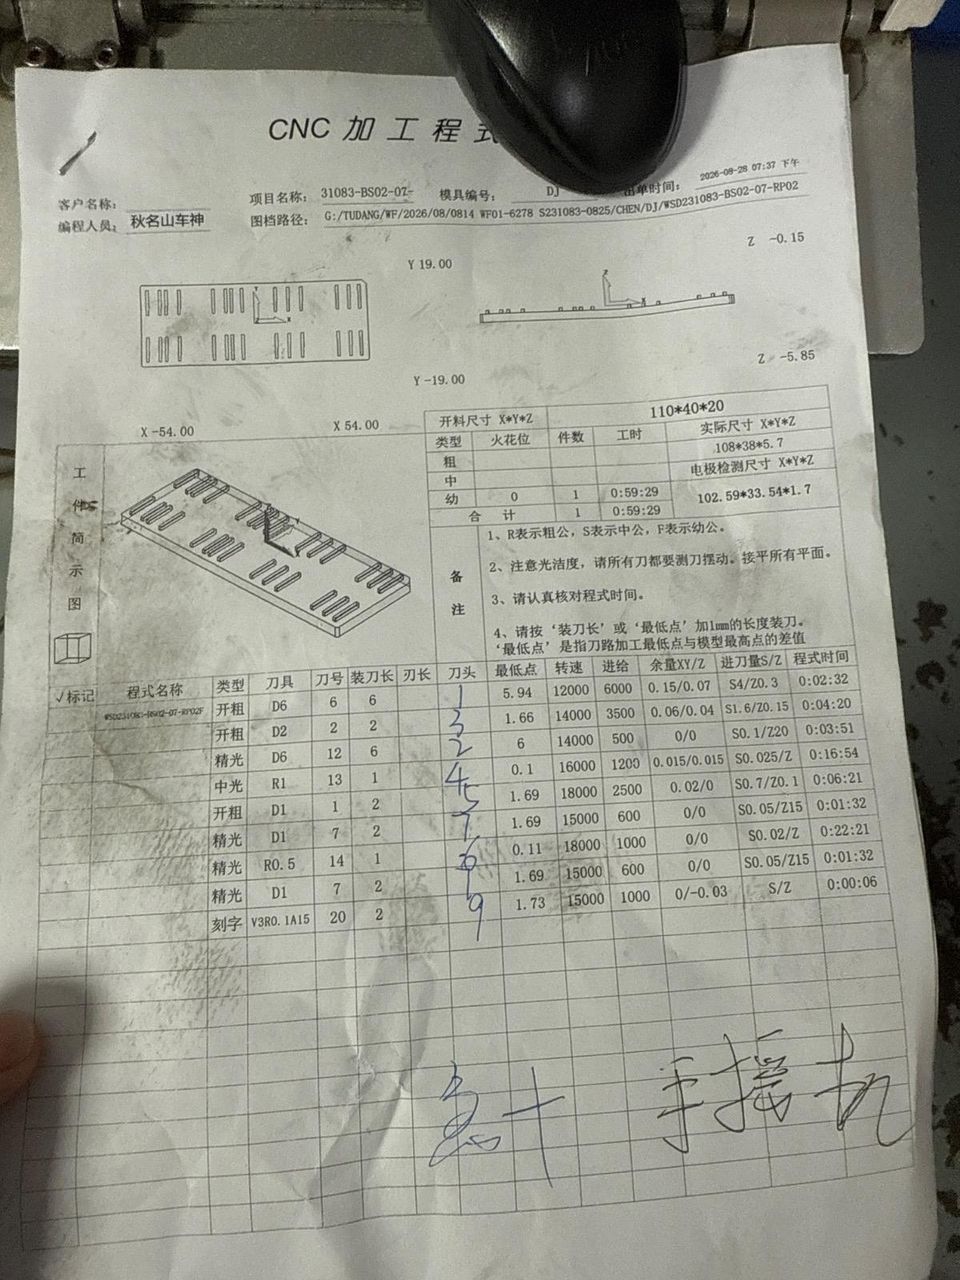 CNC 加 工 程 式
2026-08-28 07:37 下午
客户名称： 项目名称： 31083-BS02-07- 模具编号： DJ 出单时间：
编程人员： 秋名山车神 图档路径： G:/TUDANG/WF/2026/08/0814 WF01-6278 S231083-0825/CHEN/DJ/WSD231083-BS02-07-RP02
Z -0.15
Y 19.00
Z X
Y X
Z -5.85
Y -19.00
X -54.00 X 54.00
开料尺寸 X*Y*Z 110*40*20
类型 火花位 件数 工时 实际尺寸 X*Y*Z
粗 108*38*5.7
中 电极检测尺寸 X*Y*Z
幼 0 1 0:59:29 102.59*33.54*1.7
合 计 1 0:59:29
工 件 简 示 图
备 注
1、R表示粗公，S表示中公，F表示幼公。
2、注意光洁度，请所有刀都要测刀摆动。接平所有平面。
3、请认真核对程式时间。
4、请按‘装刀长’或‘最低点’加1mm的长度装刀。
‘最低点’是指刀路加工最低点与模型最高点的差值
√标记 程式名称 类型 刀具 刀号 装刀长 刃长 刀头 最低点 转速 进给 余量XY/Z 进刀量S/Z 程式时间
WSD231083-BS02-07-RP02F 开粗 D6 6 6 1 5.94 12000 6000 0.15/0.07 S4/Z0.3 0:02:32
开粗 D2 2 2 3 1.66 14000 3500 0.06/0.04 S1.6/Z0.15 0:04:20
精光 D6 12 6 2 6 14000 500 0/0 S0.1/Z20 0:03:51
中光 R1 13 1 4 0.1 16000 1200 0.015/0.015 S0.025/Z 0:16:54
开粗 D1 1 2 5 1.69 18000 2500 0.02/0 S0.7/Z0.1 0:06:21
精光 D1 7 2 7 1.69 15000 600 0/0 S0.05/Z15 0:01:32
精光 R0.5 14 1 0.11 18000 1000 0/0 S0.02/Z 0:22:21
精光 D1 7 2 1.69 15000 600 0/0 S0.05/Z15 0:01:32
刻字 V3R0.1A15 20 2 9 1.73 15000 1000 0/-0.03 S/Z 0:00:06
手摇机